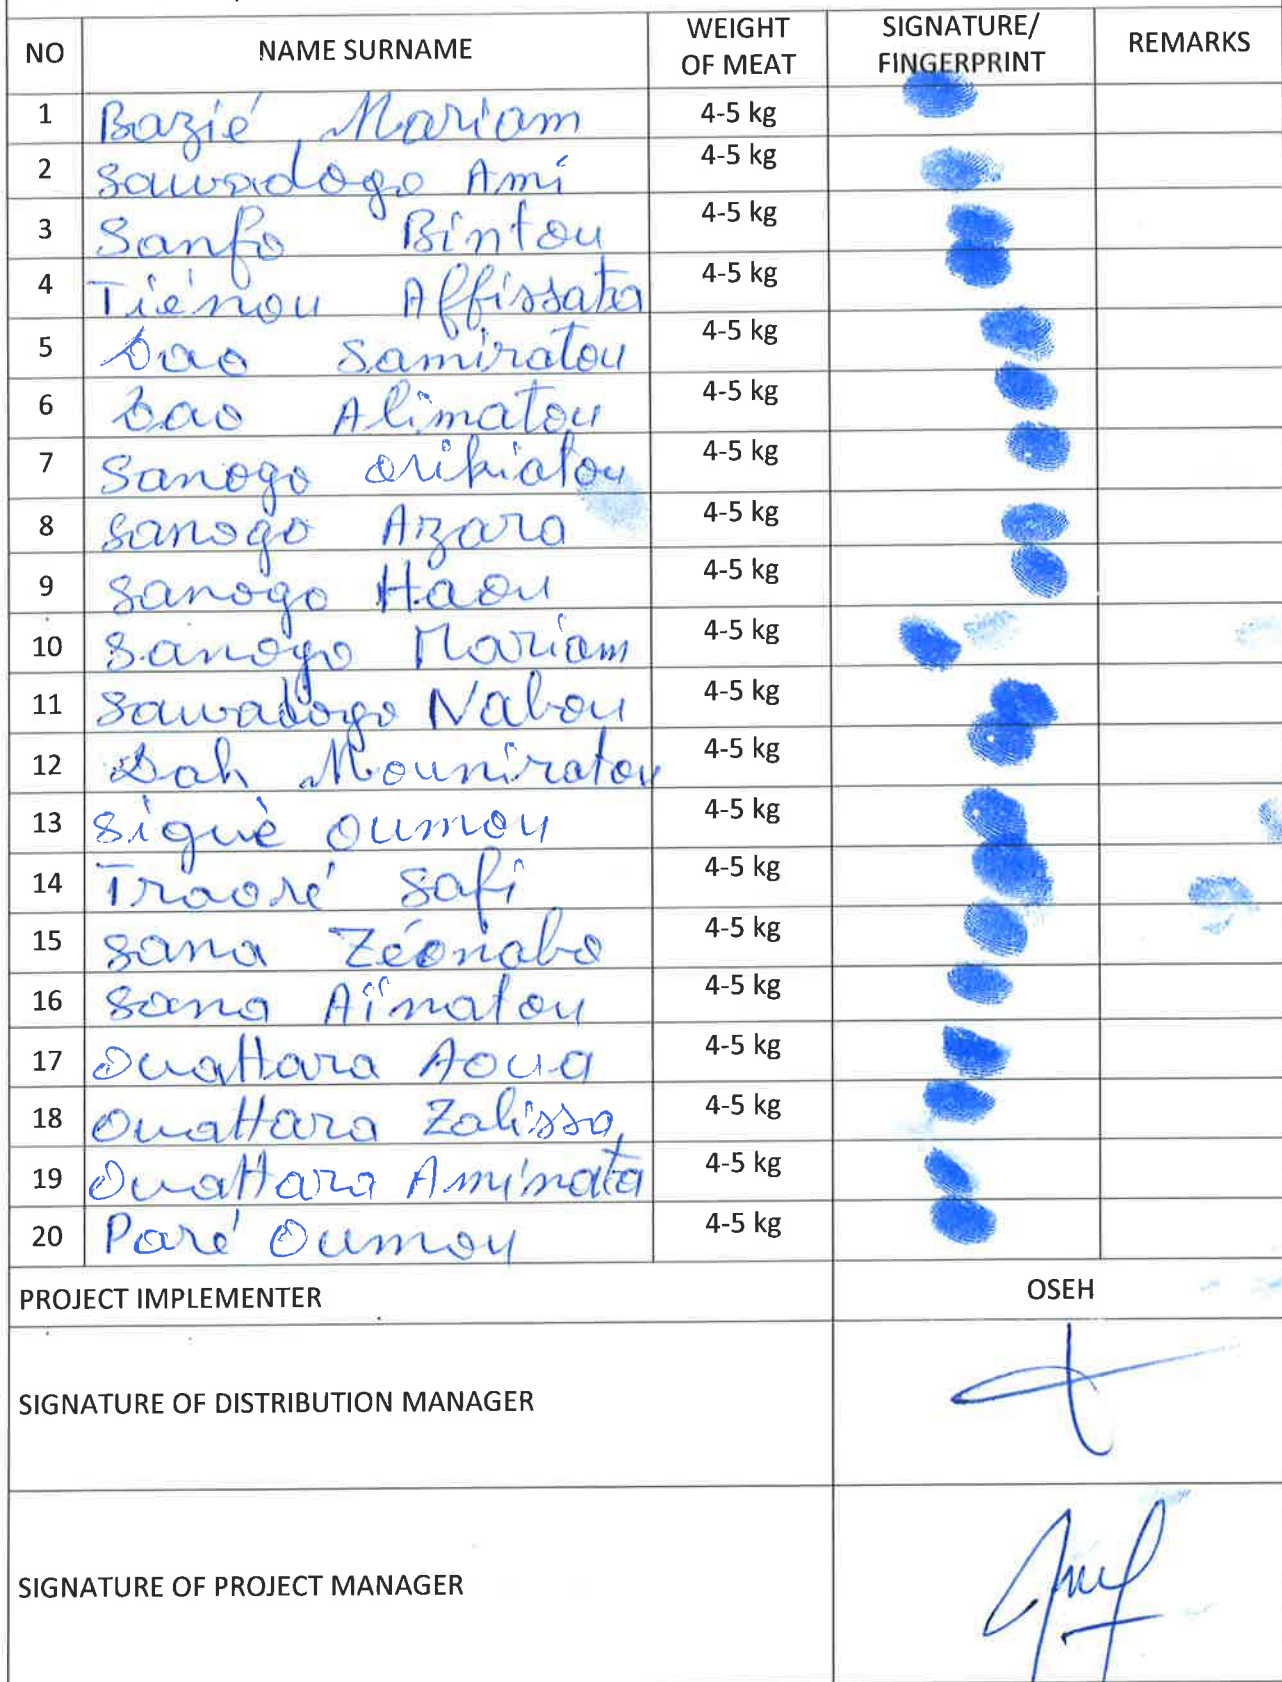 NO NAME SURNAME WEIGHT OF MEAT SIGNATURE/ FINGERPRINT REMARKS
1 Bazié Mariam 4-5 kg
2 Sawadogo Ami 4-5 kg
3 Sanfo Bintou 4-5 kg
4 Tiénou Affissata 4-5 kg
5 Dao Samiratou 4-5 kg
6 Dao Alimatou 4-5 kg
7 Sanogo 4-5 kg
8 Sanogo Azara 4-5 kg
9 Sanogo Haou 4-5 kg
10 Sanogo Mariam 4-5 kg
11 Sawadogo Nabou 4-5 kg
12 Dah Mouniratou 4-5 kg
13 Siguè Oumou 4-5 kg
14 Traoré Safi 4-5 kg
15 Sana Zéonabo 4-5 kg
16 Sana Aïnatou 4-5 kg
17 Ouattara Aoua 4-5 kg
18 Ouattara Zalissa 4-5 kg
19 Ouattara Aminata 4-5 kg
20 Paré Oumou 4-5 kg
PROJECT IMPLEMENTER OSEH
SIGNATURE OF DISTRIBUTION MANAGER
SIGNATURE OF PROJECT MANAGER